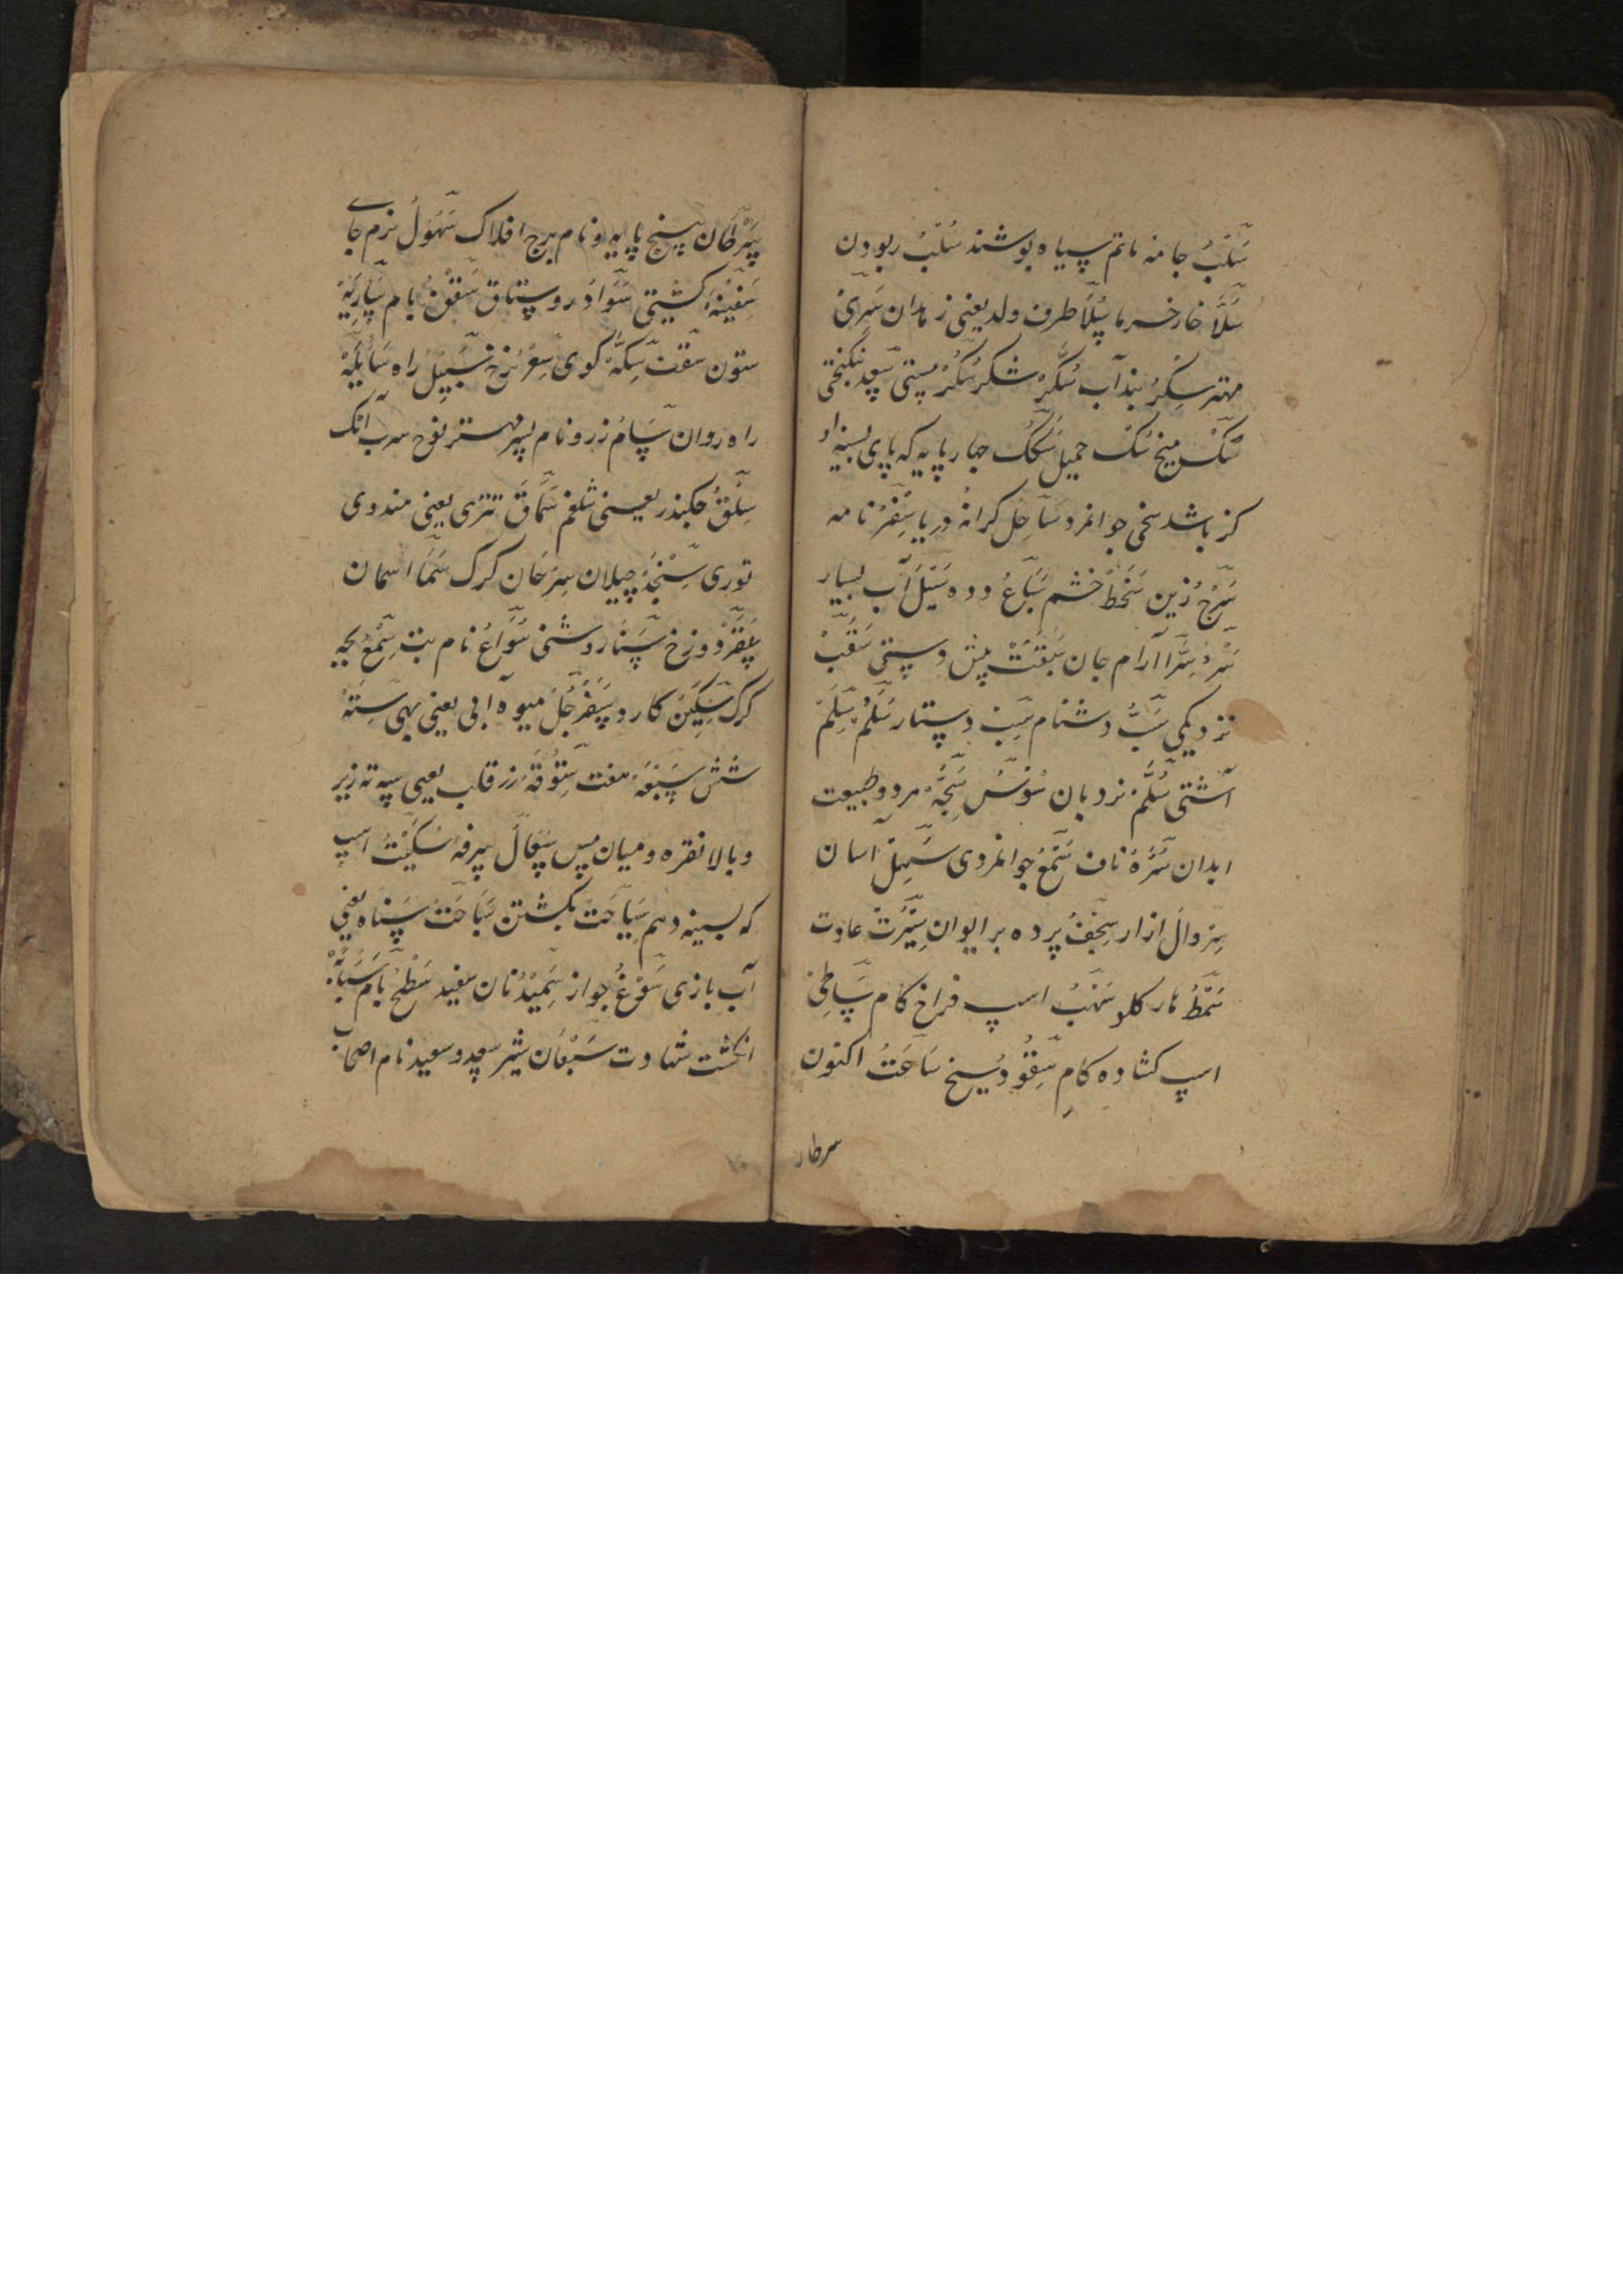 سَلَبُ جامه ماتم سیاه پوشند سَلْبُ ربودن
سُلّا خار خرما سِلَا طرف ولد یعنی زهدان سَرِیّ
مهتر سِکْرُ بند آب سُکَّرْ شکر سُکْرْ مستی سَعِد نیکبختی
سَکُّ میخ سَکّ چهارپایه که پای بسینه او
کژ باشد سخی جوانمرد سَاحِلْ کرانهٔ دریا سِفْرْ نامه
سَرْجْ زین سَخَطْ خشم سَبَاعْ دده سَیْلْ آب بسیار
سَرَّا آرام جان سَبْقَتْ پیش دستی سَقَبْ
نزدیکی سَبُّ دشنام سِبّ دستار سَلْمْ سِلْمْ
آشتی سُلَّمْ نردبان سَجِیَّهْ مرد و طبیعت
ابدان سُرَّهْ ناف جوانمردی سَهْلْ آسان
سِرْوَالْ ازار سِجْفْ پرده بر ایوان سِیْرَتْ عادت
سَمْطُ تار کلو سَهْبُ اسپ فراخ کام سَاطِیْ
اسپ کشاده کام سَفُّودْ سیخ سَاعَتُ اکنون
سرطان
سَرَطَانْ پنج پایه و نام برج افلاک سَهُوْلُ نرم جای
سَفِیْنَهْ کشتی سَوَادْ روستاق سَقْفْ بام سَارِیَهْ
ستون سقف سِکَّهْ کوی سِعْرْ نرخ سَبِیْلُ راه سَابِلَهْ
راه روان سَامُ زر و نام پسر مهتر نوح سرب انک
سِلْقُ چکندر یعنی شلغم سُمَّاقْ تتری یعنی مندوی
توری سِنْجِدْ چیلان سِرْحَانْ کرک سَمَا آسمان
سَقَرْ دوزخ سَنَا روشنی سُوَاعْ نام بت سِمْعْ بچه
کرک سِکِّیْنْ کارد سَفَرْجَلْ میوه آبی یعنی بهی سِتَّهْ
شش سَبْعَهْ هفت سَتُّوْقَهْ زر قلب یعنی سه ته زیر
و بالا نقره و میان مس سُعَالْ سرفه سُکَیْتُ اسپ
که بسینه دهم سِیَاحَتْ بکشتن سَبَاحَتْ شناه یعنی
آب بازی سَوْغُ جواز سَمِیْدْ نان سفید سَطْحْ بام سَبَّابَهْ
انکشت شهادت سَبُعَانْ شیر سعد و سعید نام اصحاب